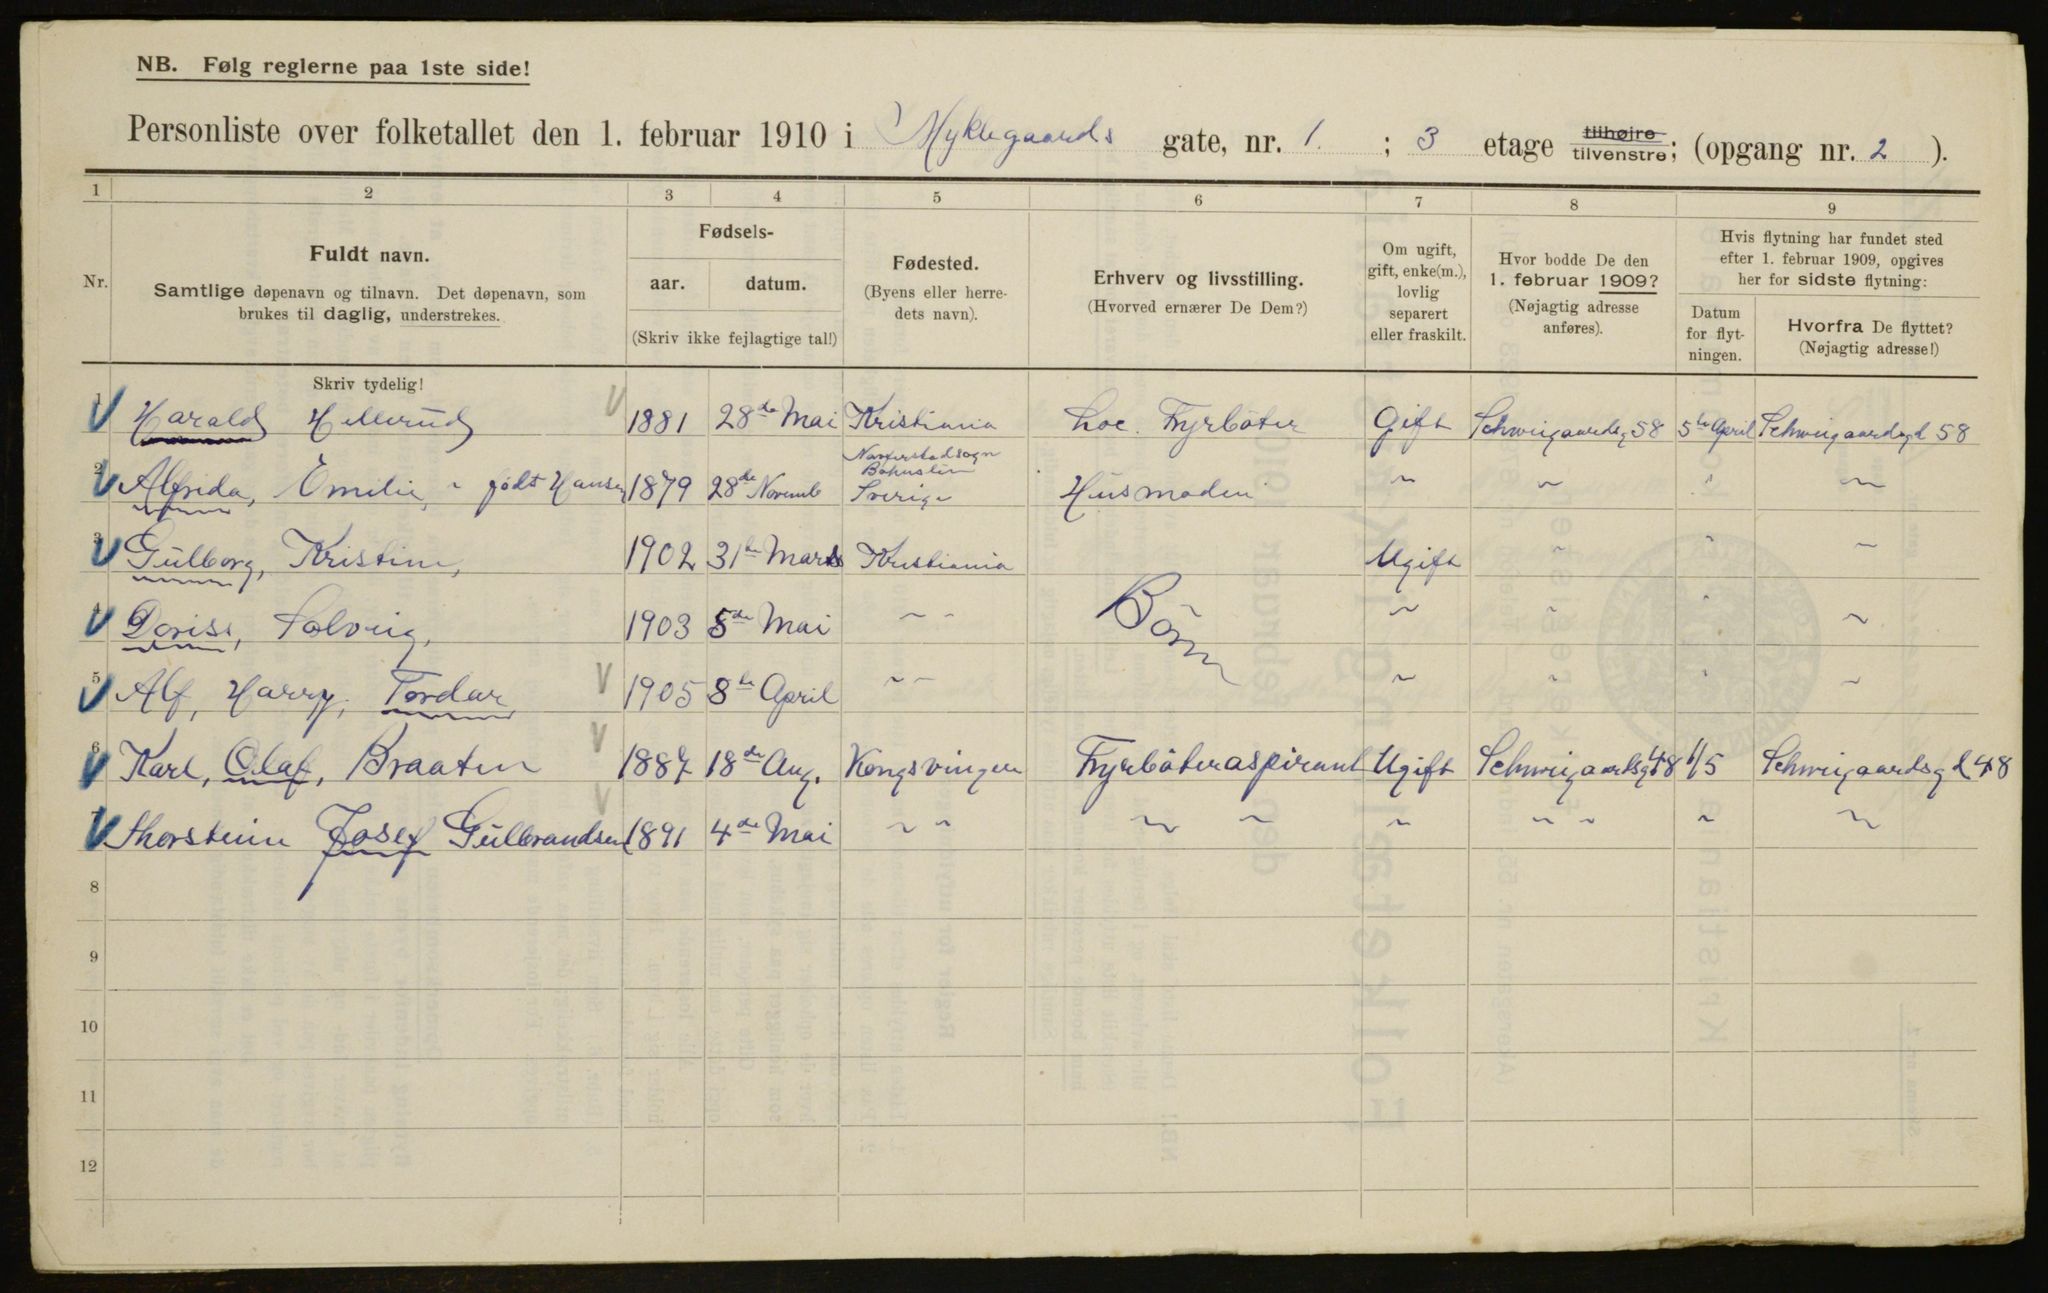 NB. Følg reglerne paa 1ste side!
Personliste over folketallet den 1. februar 1910 i Myklegaards gate, nr. 1. ; 3 etage tilhøjre tilvenstre; (opgang nr. 2 ).
1 2 3 4 5 6 7 8 9
Nr.
Fuldt navn.
Samtlige døpenavn og tilnavn. Det døpenavn, som
brukes til daglig, understrekes.
Fødsels-
aar. datum.
(Skriv ikke fejlagtige tal!)
Fødested.
(Byens eller herre-
dets navn).
Erhverv og livsstilling.
(Hvorved ernærer De Dem?)
Om ugift,
gift, enke(m.),
lovlig
separert
eller fraskilt.
Hvor bodde De den
1. februar 1909?
(Nøjagtig adresse
anføres).
Hvis flytning har fundet sted
efter 1. februar 1909, opgives
her for sidste flytning:
Datum
for flyt-
ningen.
Hvorfra De flyttet?
(Nøjagtig adresse!)
Skriv tydelig!
1 Harald Hellerud 1881 28de Mai Kristiania Loc. Fyrböter Gift Schweigaardsg 58 5te April Schweigaardsgd 58
2 Alfrida, Emilie, " født Hansen 1879 28de Novemb Naverstadsogn Bohuslen Sverige Husmoder " " " "
3 Gulborg, Kristine, 1902 31te Marts Kristiania Ugift " " "
4 Doriss, Solveig, 1903 5de Mai " " Börn " " " "
5 Alf, Harry, Tordar 1905 8de April " " " " " "
6 Karl, Olaf, Braaten 1887 18de Aug. Kongsvinger Fyrböteraspirant Ugift Schweigaardsg 48 1/5 Schweigaardsgd 48
7 Thorstein Josef Gulbrandsen 1891 4de Mai " " " " " " " " "
8
9
10
11
12